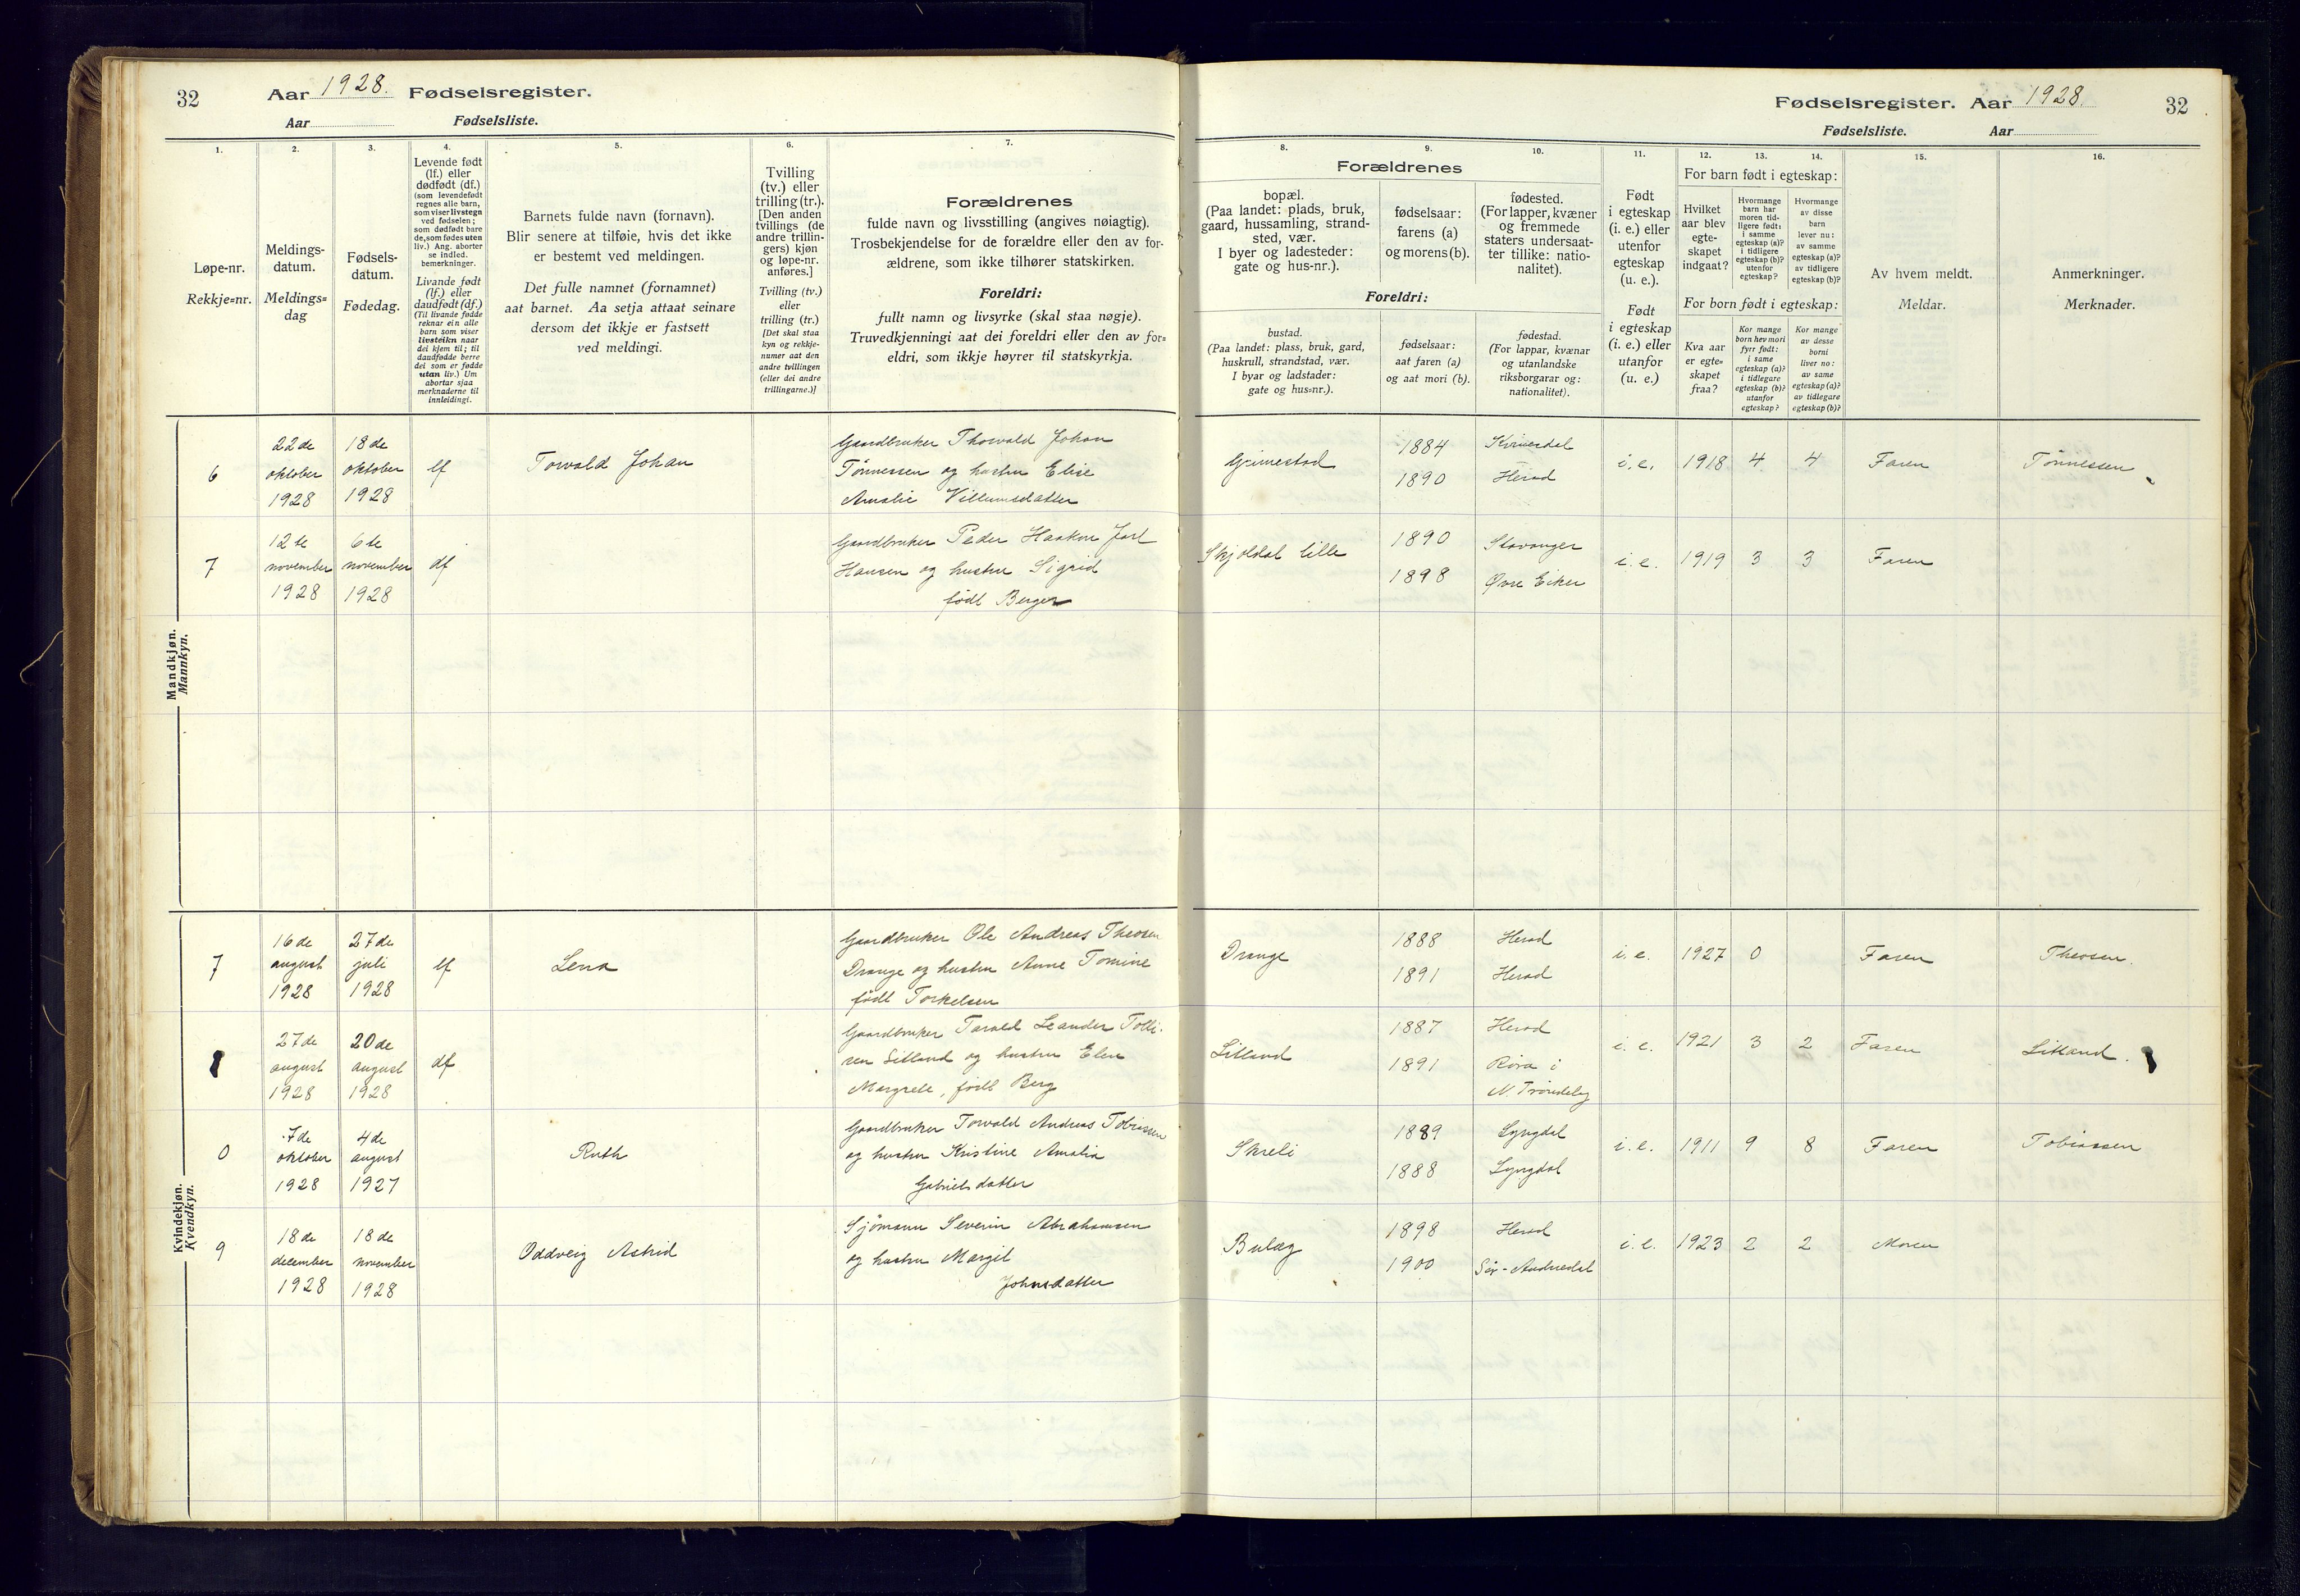 32
Aar 1928. Fødselsregister.
Aar
Fødselsliste.
Fødselsregister. Aar 1928.
32
Fødselsliste. Aar
1.
Løpe-nr.
Rekkje=nr.
2.
Meldings-
datum.
Meldings=
dag
3.
Fødsels-
datum.
Fødedag.
4.
Levende født
(lf.) eller
dødfødt (df.)
(som levendefødt
regnes alle barn,
som viser livstegn
ved fødselen;
som dødfødt bare
de, som fødes uten
liv.) Ang. aborter
se indled.
bemerkninger.
Livande født
(lf.) eller
daudfødt (df.)
(Til livande fødde
reknar ein alle
barn som viser
livsteikn naar
dei kjem til; til
daudfødde berre
dei som er fødde
utan liv.) Um
abortar sjaa
merknaderne til
innleidingi.
5.
Barnets fulde navn (fornavn).
Blir senere at tilføie, hvis det ikke
er bestemt ved meldingen.
Det fulle namnet (fornamnet)
aat barnet. Aa setja attaat seinare
dersom det ikkje er fastsett
ved meldingi.
6.
Tvilling
(tv.) eller
trilling (tr.).
[Den anden
tvillings (de
andre trillin-
gers) kjøn
og løpe-nr.
anføres.]
Tvilling (tv.)
eller
trilling (tr.)
[Det skal staa
kyn og rekkje-
numer aat den
andre tvillingen
(eller dei andre
trillingarne.)]
7.
Forældrenes
fulde navn og livsstilling (angives nøiagtig).
Trosbekjendelse for de forældre eller den av for-
ældrene, som ikke tilhører statskirken.
Foreldri:
fullt namn og livsyrke (skal staa nøgje).
Truvedkjenningi aat dei foreldri eller den av for=
eldri, som ikkje høyrer til statskyrkja.
Forældrenes
8.
bopæl.
(Paa landet: plads, bruk,
gaard, hussamling, strand-
sted, vær.
I byer og ladesteder:
gate og hus-nr.).
9.
fødselsaar:
farens (a)
og morens (b).
10.
fødested.
(For lapper, kvæner
og fremmede
staters undersaat-
ter tillike: natio-
nalitet).
Foreldri:
bustad.
(Paa landet: plass, bruk, gard,
huskrull, strandstad, vær.
I byar og ladstader:
gate og hus=nr.).
fødselsaar:
aat faren (a)
og aat mori (b).
fødestad.
(For lappar, kvænar
og utanlandske
riksborgarar og:
nationalitet).
11.
Født
i egteskap
(i. e.) eller
utenfor
egteskap
(u. e.).
Født
i egteskap
(i. e.) eller
utanfor
(u. e.)
12. 13. 14.
For barn født i egteskap:
Hvilket
aar blev
egte-
skapet
indgaat?
Hvormange
barn har
moren tid-
ligere født:
i samme
egteskap (a)?
i tidligere
egteskap (b)?
utenfor
egteskap?
Hvormange
av disse
barn
lever nu:
av samme
egteskap (a)?
av tidligere
egteskap (b)?
For born født i egteskap:
Kva aar
er egte=
skapet
fraa?
Kor mange
born hev mori
fyrr født:
i same
egteskap (a)?
i tidlegare
egteskap (b)?
utanfor
egteskap?
Kor mange
av desse
borni
liver no:
av same
egteskap (a)?
av tidlegare
egteskap (b)?
15.
Av hvem meldt.
Meldar.
16.
Anmerkninger.
Merknader.
Mandkjøn.
Mannkyn.
6
22de
oktober
1928
18de
oktober
1928
lf
Torvald Johan
Gaardbruker Thorvald Johan
Tønnessen og hustru Elise
Amalie Villumsdatter
Grimestad
1884
1890
Kvinesdal
Herad
i. e. 1918 4 4 Faren Tønnessen
7
12te
november
1928
6te
november
1928
df
Gaardbruker Peder Haakon Jarl
Hansen og hustru Sigrid
født Berger
Skjoldal lille
1890
1898
Stavanger
Øvre Eiker
i. e. 1919 3 3 Faren
Kvindekjøn.
Kvendkyn.
7
16de
august
1928
27de
juli
1928
lf
Lena
Gaardbruker Ole Andreas Theosen
Drange og hustru Anne Tomine
født Torkelsen
Drange
1888
1891
Herad
Herad
i. e. 1927 0 Faren Theosen.
27de
august
1928
20de
august
1928
df
Gaardbruker Tarald Leander Tolli-
sen Litland og hustru Elen
Margrete, født Berg
Litland
1887
1891
Herad
Røra i
N. Trøndelag
i. e. 1921 3 2 Faren Litland.
0
7de
oktober
1928
4de
august
1927
Ruth
Gaardbruker Torvald Andreas Tobiassen
og hustru Kristine Amalia
Gabrielsdatter
Skreli
1889
1888
Lyngdal
Lyngdal
i. e. 1911 9 8 Faren Tobiassen
9
18de
december
1928
18de
november
1928
Oddveig Astrid
Sjømann Severin Abrahamsen
og hustru Margit
Johnsdatter
Bulæg
1898
1900
Herad
Sør-Audnedal
i. e. 1923 2 2 Moren